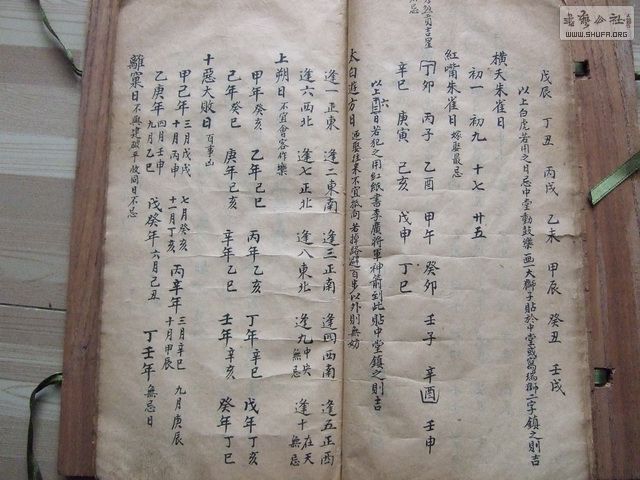 書藝公社
WWW.SHUFA.ORG
戊辰 丁丑 丙戌 乙未 甲辰 癸丑 壬戌
以上白虎若用之日忌中堂動鼓樂画大獅子貼於中堂或寫瑞獅二字鎮之則吉
橫天朱雀日
初一 初九 十七 廿五
紅嘴朱雀日 嫁娶最忌
丁卯 丙子 乙酉 甲午 癸卯 壬子 辛酉 壬申
辛巳 庚寅 己亥 戊申 丁巳
日若犯之用紅紙書李廣將軍神箭到此貼中堂鎮之則吉
太白遊方日 百步以外則無妨
逢一正東 逢二東南 逢三正南 逢四西南 逢五正西
逢六西北 逢七正北 逢八東北 逢九中央無忌 逢十在天無忌
上朔日 不宜會客作樂
甲年癸亥 乙年己巳 丙年乙亥 丁年辛亥 戊年丁亥
己年癸巳 庚年己亥 辛年乙巳 壬年辛亥 癸年丁巳
十惡大敗日 百事凶
甲己年 三月戊戌 七月癸亥 十月丙申 十一月丁亥 丙辛年 三月辛巳 九月庚辰 十月甲辰
乙庚年 四月壬申 九月乙巳 戊癸年 六月己丑 丁壬年 無忌日
離窠日